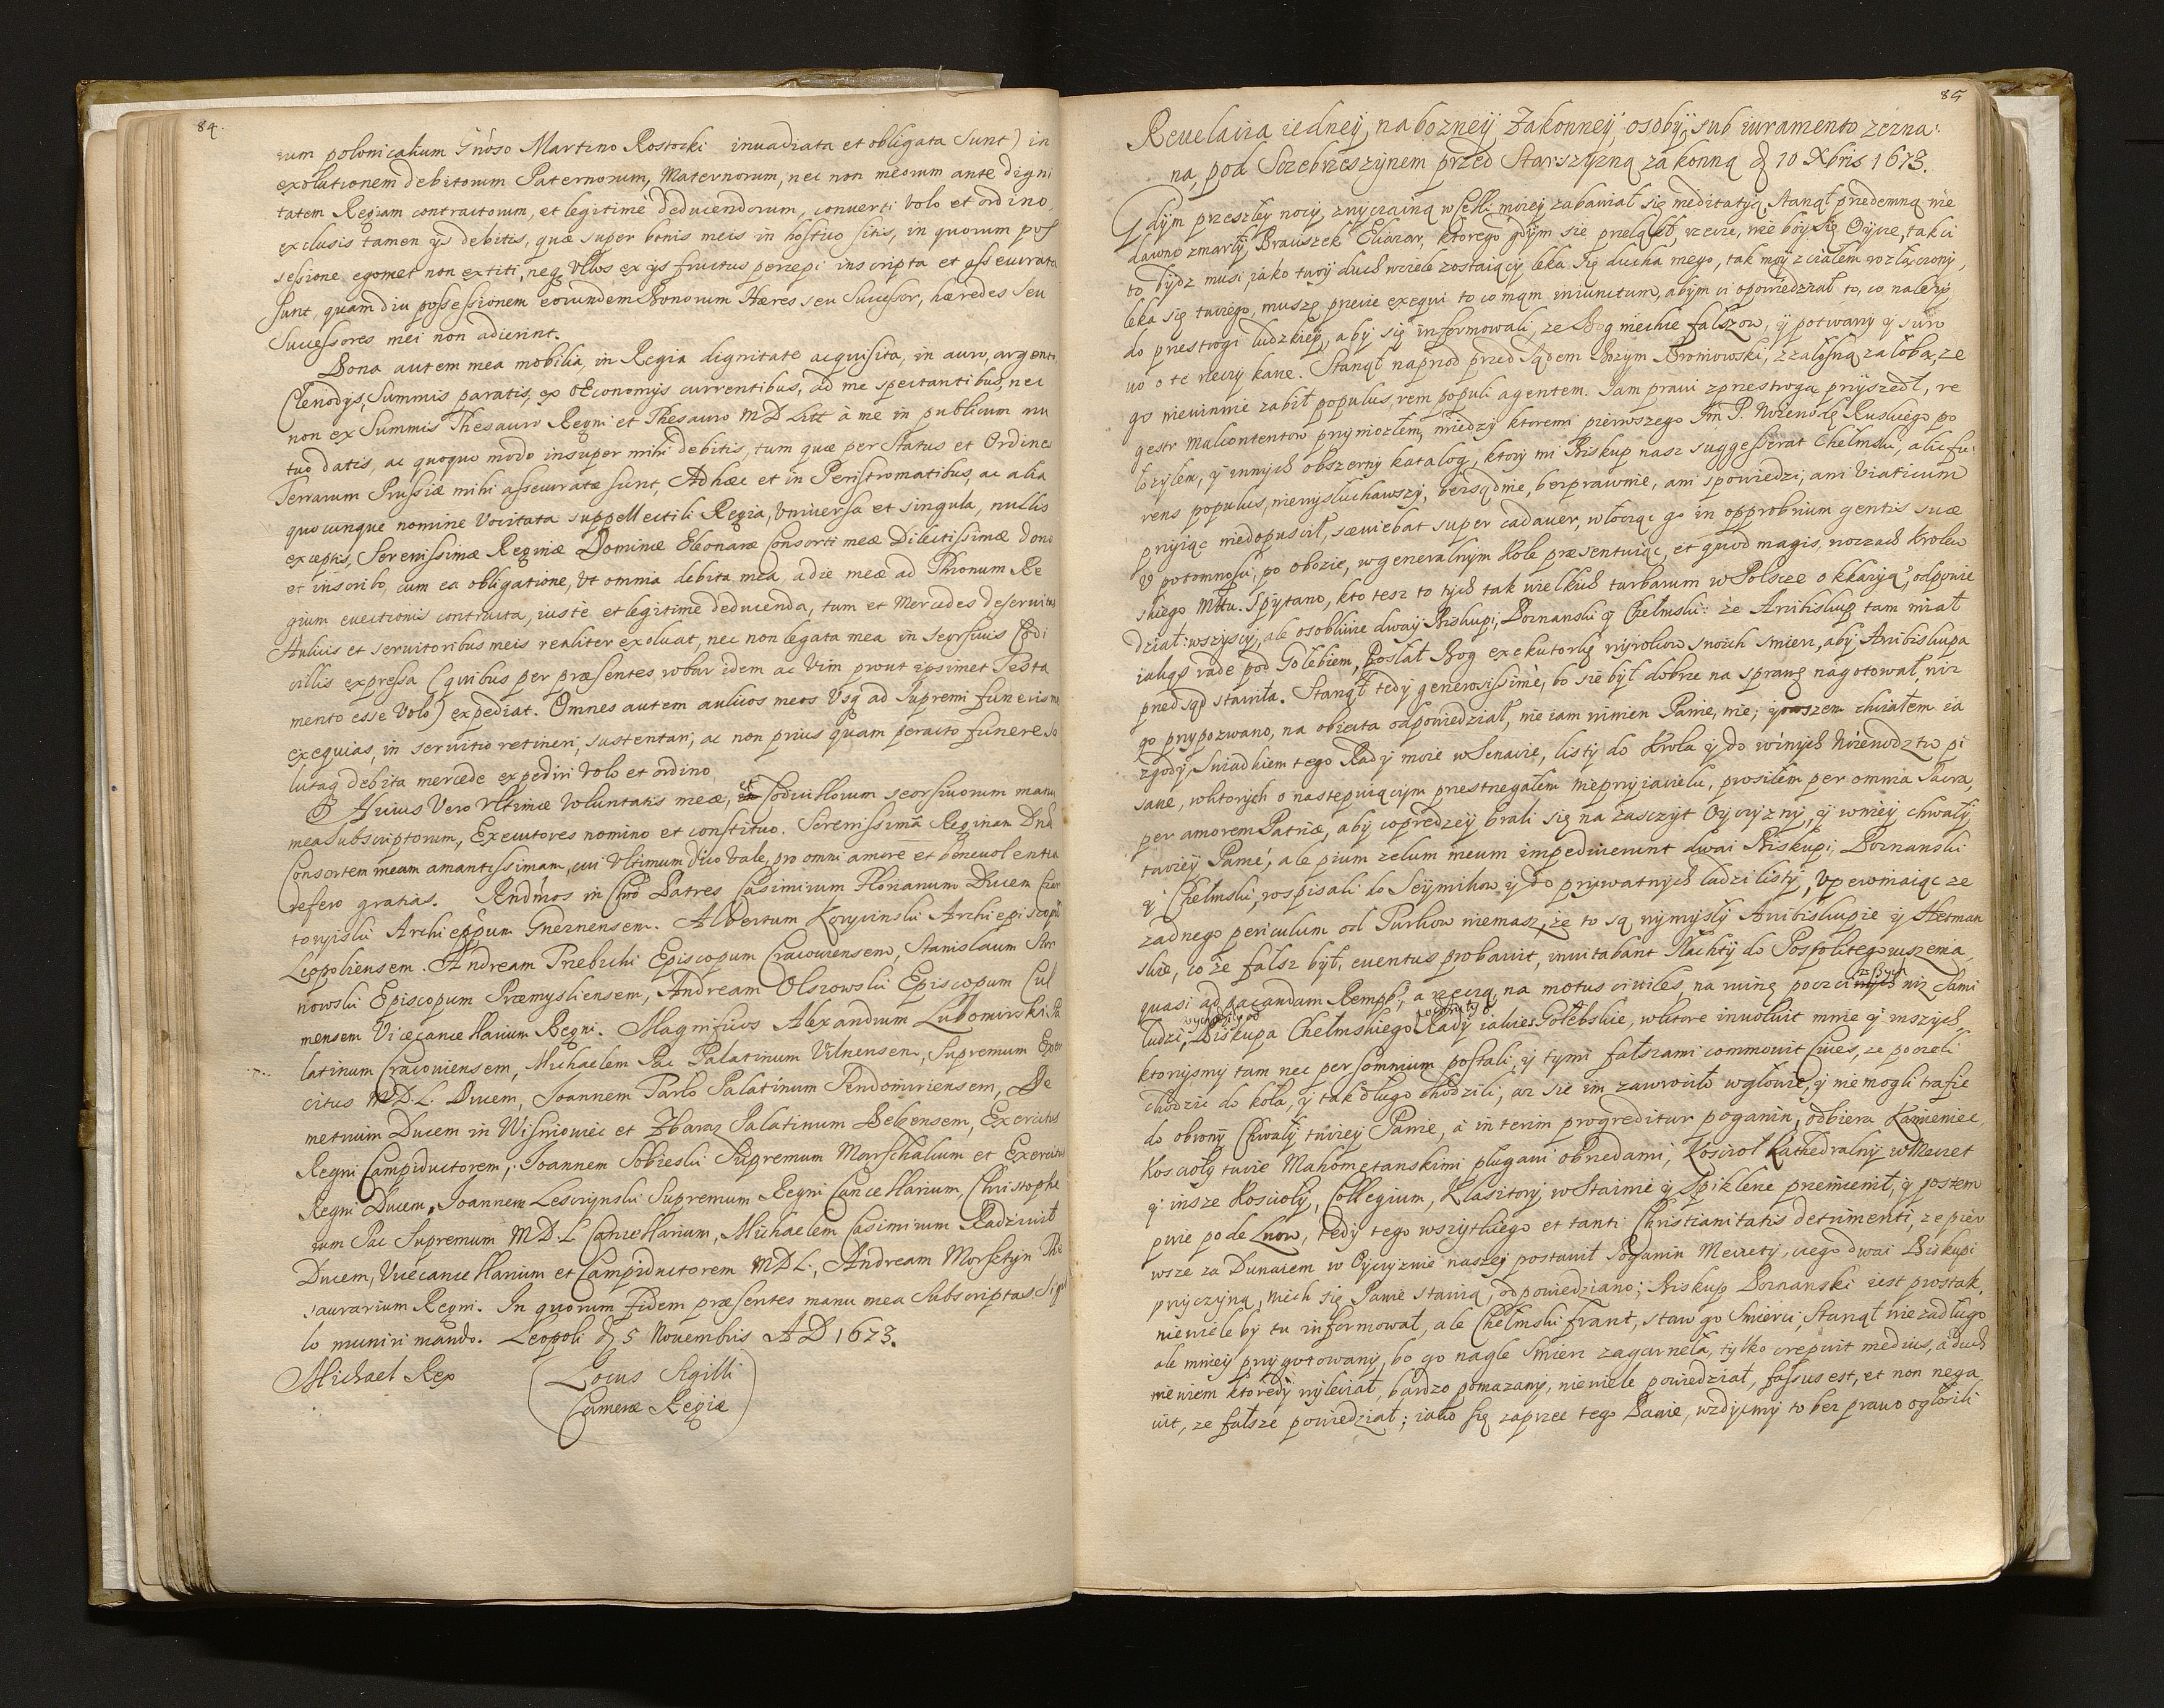 84.
rum polonicalium Gnoso Martino Rostocki invadiata et obligata sunt) in
exolutionem debitorum Paternorum, Maternorum, nec non meorum ante digni
tatem Regiam contractorum, et legitimè deducendorum, converti volo et ordino,
exclusis tamen ijs debitis, quæ super bonis meis in hostico sitis, in quorum pos
sessione egomet non extiti, neq ullos ex ijs fructus percepi inscripta et assecurata
sunt, quam diu possessionem eorundem Bonorum Hæres seu Successor, hæredes seu
Successores mei non adierint.
Bona autem mea mobilia, in Regia dignitate acquisita, in auro, argento
Clenodijs, Summis paratis, ex Œconomijs currentibus, ad me spectantibus, nec
non ex Summis Thesauro Regni et Thesauro MD Litt à me in publicum mu
tuo datis, ac quoquo modo insuper mihi debitis, tum quæ per Status et Ordines
Terrarum Prussiæ mihi assecuratæ sunt, Ad hæc et in Peristromatibus, ac alia
quocunque nomine vocitata suppellectili Regia, universa et singula, nullis
exceptis, Serenissimæ Reginæ Dominæ Eleonaræ Consorti meæ Dilectissimæ dono
et inscribo, cum ea obligatione, ut omnia debita mea, a die meæ ad Thronum Re
gium evectionis contracta, iustè et legitimè deducenda, tum et Mercedes deservitas
Aulicis et servitoribus meis realiter exolvat, nec non legata mea in seorsivis Codi
cillis expressa (quibus per præsentes robur idem ac vim prout ipsimet Testa
mento esse volo) expediat. Omnes autem aulicos meos usq ad supremi funeris mei
exequias, in servitio retineri, sustentari, ac non prius quam peracto funere so
lutaq debita mercede expediri volo et ordino
Huius vero ultimæ voluntatis meæ, et Codicillorum seorsivorum manu
mea subscriptorum, Executores nomino et constituo. Serenissimã Reginam Dnã
Consortem meam amantissimam, cui ultimum dico Vale, pro omni amore et benevolentia
refero gratias. Rndmos in Chro Patres Casimirum Florianum Ducem Czar
toryiski Archieppum Gneznensem. Albertum Koryciński Archiepiscopũ
Leopoliensem. Andream Trzebicki Episcopum Cracoviensem, Stanislaum Sar
nowski Episcopum Præmysliensem, Andream Olszowski Episcopum Cul
mensem Vicecancellarium Regni. Magnificos Alexandrum Lubomirski Pa
latinum Cracoviensem, Michaelem Pac Palatinum Vilnensem, Supremum Exer
citus MD.L. Ducem, Joannem Tarlo Palatinum Sendomiriensem, De
metrium Ducem in Wisniowiec et Zbaraz Palatinum Belzensem, Exercitus
Regni Campiductorem, Joannem Sobieski Supremum Marschalcum et Exercitus
Regni Ducem, Joannem Lesczynski Supremum Regni Cancellarium, Christopho
rum Pac Supremum MD.L Cancellarium, Michaelem Casimirum Radziwił
Ducem, Vicecancellarium et Campiductorem MDL., Andream Morsztyn The
saurarium Regni. In quorum fidem præsentes manu mea Subscriptas Sigil
lo muniri mando. Leopoli D 5 Novembris AD 1673.
Michael Rex
(Locus Sigilli
Cameræ Regiæ)
85
Revelatia iedneÿ, nabozneÿ Zakonneÿ, osobÿ, sub iuramento zezna:
na, pod Sczebrzeszynem przed Starszyzną zakonną D 10 Xbris 1673.
Gdÿm przeszłeÿ nocÿ, zwyczainą w Celli moieÿ zabawiał się meditatyą Stanął przedemną nie
dawno zmarłÿ Braciszek Eliazar, ktorego gdÿm się przeląkł, rzecze, nie bóÿ się Oÿcze, tak ci
to bydz musi, iako twóÿ duch w ciele zostaiącÿ leka się ducha mego, tak móÿ z ciałem rozłączonÿ,
leka się twoiego, muszę przecie exequi to co mam iniunctum, abÿm ci opowiedział to, co należÿ
do przestrogi ludzkieÿ, abÿ się informowali, że Bog niechce fałszow, ÿ potwarÿ ÿ suro
wo o te rzeczÿ karze. Stanął naprzod przed Sądem Bożym Broniowski, z żałosną załobą, że
go niewinnie zabił populus, rem populi agentem. Iam prawi z przestrogą przÿszedł, re
gestr Malcontentow przÿniosłem, międzÿ ktoremi pierwszego Jm P. Woiewodę Ruskiego po
łożÿłem, ÿ innÿch obszernÿ katalog, ktorÿ mi Biskup nasz suggesserat Chełmski, alic fu:
rens populus, niewÿsłuchawszÿ, bezsądnie, bezprawnie, ani spowiedzi, ani Viaticum
przÿiąc niedopuścił, sæviebat super cadaver, włocząc go in opprobrium gentis suæ
ÿ potomności, po obozie, w generalnym Kole præsentuiąc, et quod magis, w oczach Krolew
skiego Mtu. Spÿtano, kto tesz to tÿch tak wielkich turbarum w Polscze okkazÿą?, odpowie
dział: wszÿscÿ, ale osobliwie dwaÿ Biskupi, Poznanski ÿ Chełmski: że Arcibiskup tam miał
iakąs radę pod Gołebiem, Posłał Bog exekutorkę wÿrokow swoich Smierc, abÿ Arcibiskupa
przed sąd stawiła. Stanął tedÿ generosissimè, bo się bÿł dobrze na sprawę nagotował, niz
go przÿpozwano, na obiecta odpowiedział, nie iam winien Panie, nie; chciałem ia
zgodÿ, Swiadkiem tego Radÿ moie w Senacie, listÿ do Krola ÿ do róznÿch Woiewodztw pi
sane, w ktorych o następuiącym przestrzegałem nieprzÿiacielu, prosiłem per omnia Sacra,
per amorem Patriæ, abÿ coprędzeÿ brali się na zasczÿt Oÿczÿznÿ, ÿ w nieÿ chwałÿ
twoieÿ Panie, ale pium zelum meum impediverunt dwai Biskupi, Poznanski
ÿ Chełmski, rospisali do Seÿmikow ÿ do prÿwatnÿch ludzi listÿ, Upewniaiąc ze
żadnego periculum od Turkow niemasz, że to są wymÿsłÿ Arcibiskupie ÿ Hetman
skie, co że fałsz bÿł, eventus probavit, invitabant Slachtÿ do Pospolitego ruszenia,
quasi ad pacandam Rempp, a rzeczą na motus civiles, na ruinę poczciwszych niz sami
ludzi, wychodziły od Biskupa Chełmskiego Radÿ iakies Gołebskie, w ktore involvit mnie ÿ inszÿch
ktorÿsmÿ tam nec per somnium postali, ÿ tymi fałszami commovit Cives, ze poczeli
chodzic do koła, ÿ tak długo chodzili, az się im zawrociło w głowie, ÿ nie mogli trafic
do obronÿ Chwałÿ twoieÿ Panie, à interim progreditur poganin, odbiera Kamieniec,
Kosciołÿ twoie Mahometanskimi plugawi obrzedami, Koscioł Kathedralnÿ w Meczet
ÿ insze Kosciołÿ, Collegium, Klasztorÿ, w Stainie ÿ Spiklerze przemienił, ÿ postem
puie pode Lwow, tedÿ tego wszÿtkiego et tanti Christianitatis detrimenti, ze pier
wsze za Dunaiem w Oÿczÿznie naszeÿ postawił Poganin Meczetÿ, iego dwai Biskupi
przÿczÿną, niech się Panie stawią, odpowiedziano; Biskup Poznanski iest prostak,
niewiele bÿ tu informował, ale Chełmski frant, staw go Smierci, Stanął niezadługo
ale mnieÿ przÿgotowanÿ, bo go nagle Smierc zagarnela, tylko crepuit medius, a duch
niewiem ktoredÿ wyleciał, bardzo pomazanÿ, niewiele powiedział, fassus est, et non nega
vit, ze fałsze powiedział; iako się zaprzec tego Panie, wzdÿsmÿ to bez prawo ogłosili